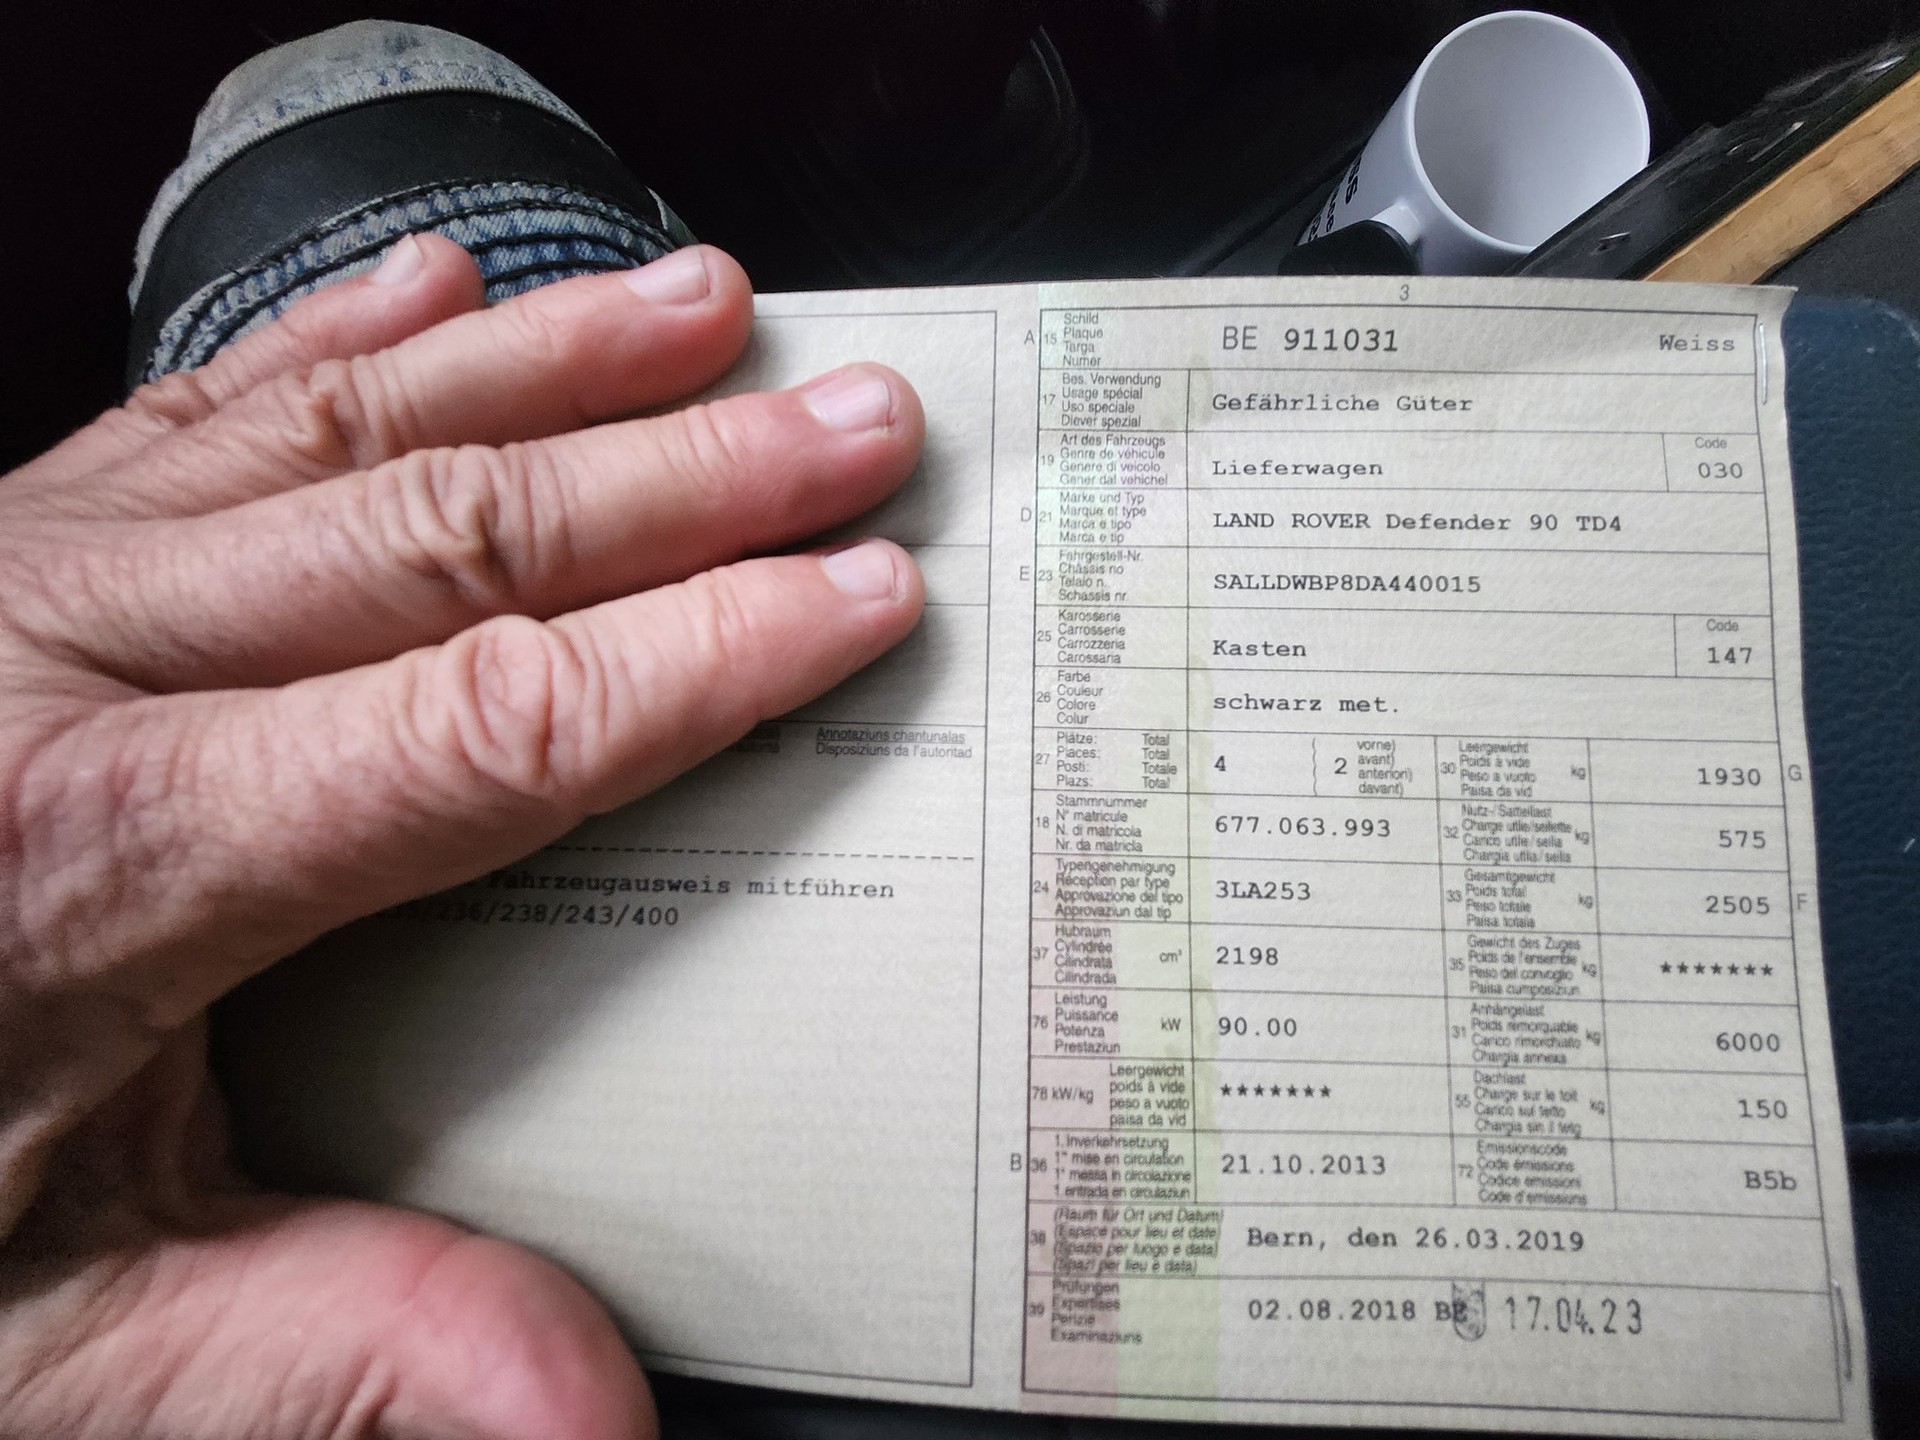 Annotaziuns chantunalas
Disposiziuns da l'autoritad
Fahrzeugausweis mitführen
/238/243/400
3
A 15 Schild
Plaque
Targa
Numer
BE 911031 Weiss
17 Bes. Verwendung
Usage spécial
Uso speciale
Diever spezial
Gefährliche Güter
19 Art des Fahrzeugs
Genre de véhicule
Genere di veicolo
Gener dal vehichel
Lieferwagen
Code
030
D 21 Marke und Typ
Marque et type
Marca e tipo
Marca e tip
LAND ROVER Defender 90 TD4
E 23 Fahrgestell-Nr.
Châssis no
Telaio n.
Schassis nr.
SALLDWBP8DA440015
25 Karosserie
Carrosserie
Carrozzeria
Carossaria
Kasten
Code
147
26 Farbe
Couleur
Colore
Colur
schwarz met.
27 Plätze: Total
Places: Total
Posti: Totale
Plazs: Total
4
2
vorne)
avant)
anteriori)
davant)
30 Leergewicht
Poids à vide
Peso a vuoto
Paisa da vid
kg
1930 G
18 Stammnummer
N° matricule
N. di matricola
Nr. da matricla
677.063.993
32 Nutz-/Sattellast
Charge utile/sellette
Carico utile/sella
Chargia utila/sella
kg
575
24 Typengenehmigung
Réception par type
Approvazione del tipo
Approvaziun dal tip
3LA253
33 Gesamtgewicht
Poids total
Peso totale
Paisa totala
kg
2505 F
37 Hubraum
Cylindrée
Cilindrata
Cilindrada
cm³
2198
35 Gewicht des Zuges
Poids de l'ensemble
Peso del convoglio
Paisa cumposiziun
kg
*******
76 Leistung
Puissance
Potenza
Prestaziun
kW
90.00
31 Anhängelast
Poids remorquable
Carico rimorchiato
Chargia annexa
kg
6000
78 kW/kg
Leergewicht
poids à vide
peso a vuoto
paisa da vid
*******
55 Dachlast
Charge sur le toit
Carico sul tetto
Chargia sin il tetg
kg
150
B 36 1. Inverkehrsetzung
1re mise en circulation
1a messa in circolazione
1. entrada en circulaziun
21.10.2013
72 Emissionscode
Code émissions
Codice emissioni
Code d'emissiuns
B5b
38 (Raum für Ort und Datum)
(Espace pour lieu et date)
(Spazio per luogo e data)
(Spazi per lieu e data)
Bern, den 26.03.2019
39 Prüfungen
Expertises
Perizie
Examinaziuns
02.08.2018 BE 17.04.23